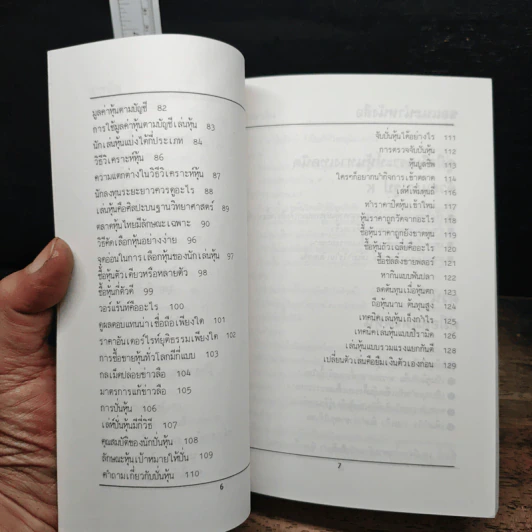 มูลค่าหุ้นตามบัญชี 82
การใช้มูลค่าหุ้นตามบัญชีเล่นหุ้น 83
นักเล่นหุ้นแบ่งได้กี่ประเภท 84
วิธีวิเคราะห์หุ้น 86
ความแตกต่างในวิธีวิเคราะห์หุ้น 87
นักลงทุนระยะยาวควรดูอะไร 88
เล่นหุ้นคือศิลปะบนฐานวิทยาศาสตร์ 89
ตลาดหุ้นไทยมีลักษณะเฉพาะ 90
วิธีคัดเลือกหุ้นอย่างง่าย 96
จุดอ่อนในการเลือกหุ้นของนักเล่นหุ้น 97
ซื้อหุ้นตัวเดียวหรือหลายตัว 98
ซื้อหุ้นกี่ตัวดี 99
วอร์แร้นท์คืออะไร 100
ดูผลตอบแทนน่าเชื่อถือเพียงใด 101
ราคาอันเดอร์ไรท์ยุติธรรมเพียงใด 102
การซื้อขายหุ้นทั่วโลกมีกี่แบบ 103
กลเม็ดปล่อยข่าวลือ 104
มาตรการแก้ข่าวลือ 105
การปั่นหุ้น 106
เล่ห์ปั่นหุ้นมีกี่วิธี 107
คุณสมบัติของนักปั่นหุ้น 108
ลักษณะหุ้นเป้าหมายให้ปั่น 109
คำถามเกี่ยวกับปั่นหุ้น 110
6
จับปั่นหุ้นได้อย่างไร 111
การตรวจจับปั่นหุ้น 112
หุ้นบูลชิพ 113
ใครๆก็อยากนำกิจการเข้าตลาด 114
เล่ห์เพิ่มทุนผี 116
ทำราคาปิดหุ้นเข้าใหม่ 117
หุ้นราคาถูกวัดจากอะไร 118
ซื้อหุ้นราคาถูกยังขาดทุน 119
ซื้อหุ้นถัวเฉลี่ยคืออะไร 120
ซื้อชิลลิ่งขายฟลอร์ 121
ทากันแบบฟันปลา 122
ลดต้นทุนเมื่อหุ้นตก 123
ถือหุ้นนาน ต้นทุนสูง 124
เทคนิคเล่นหุ้นเก็งกำไร 125
เทคนิคเล่นหุ้นแบบปิรามิด 126
เล่นหุ้นแบบรวมแรงแบกกันดี 128
เปลี่ยนตัวเล่นคือยืมเงินตัวเองก่อน 129
7